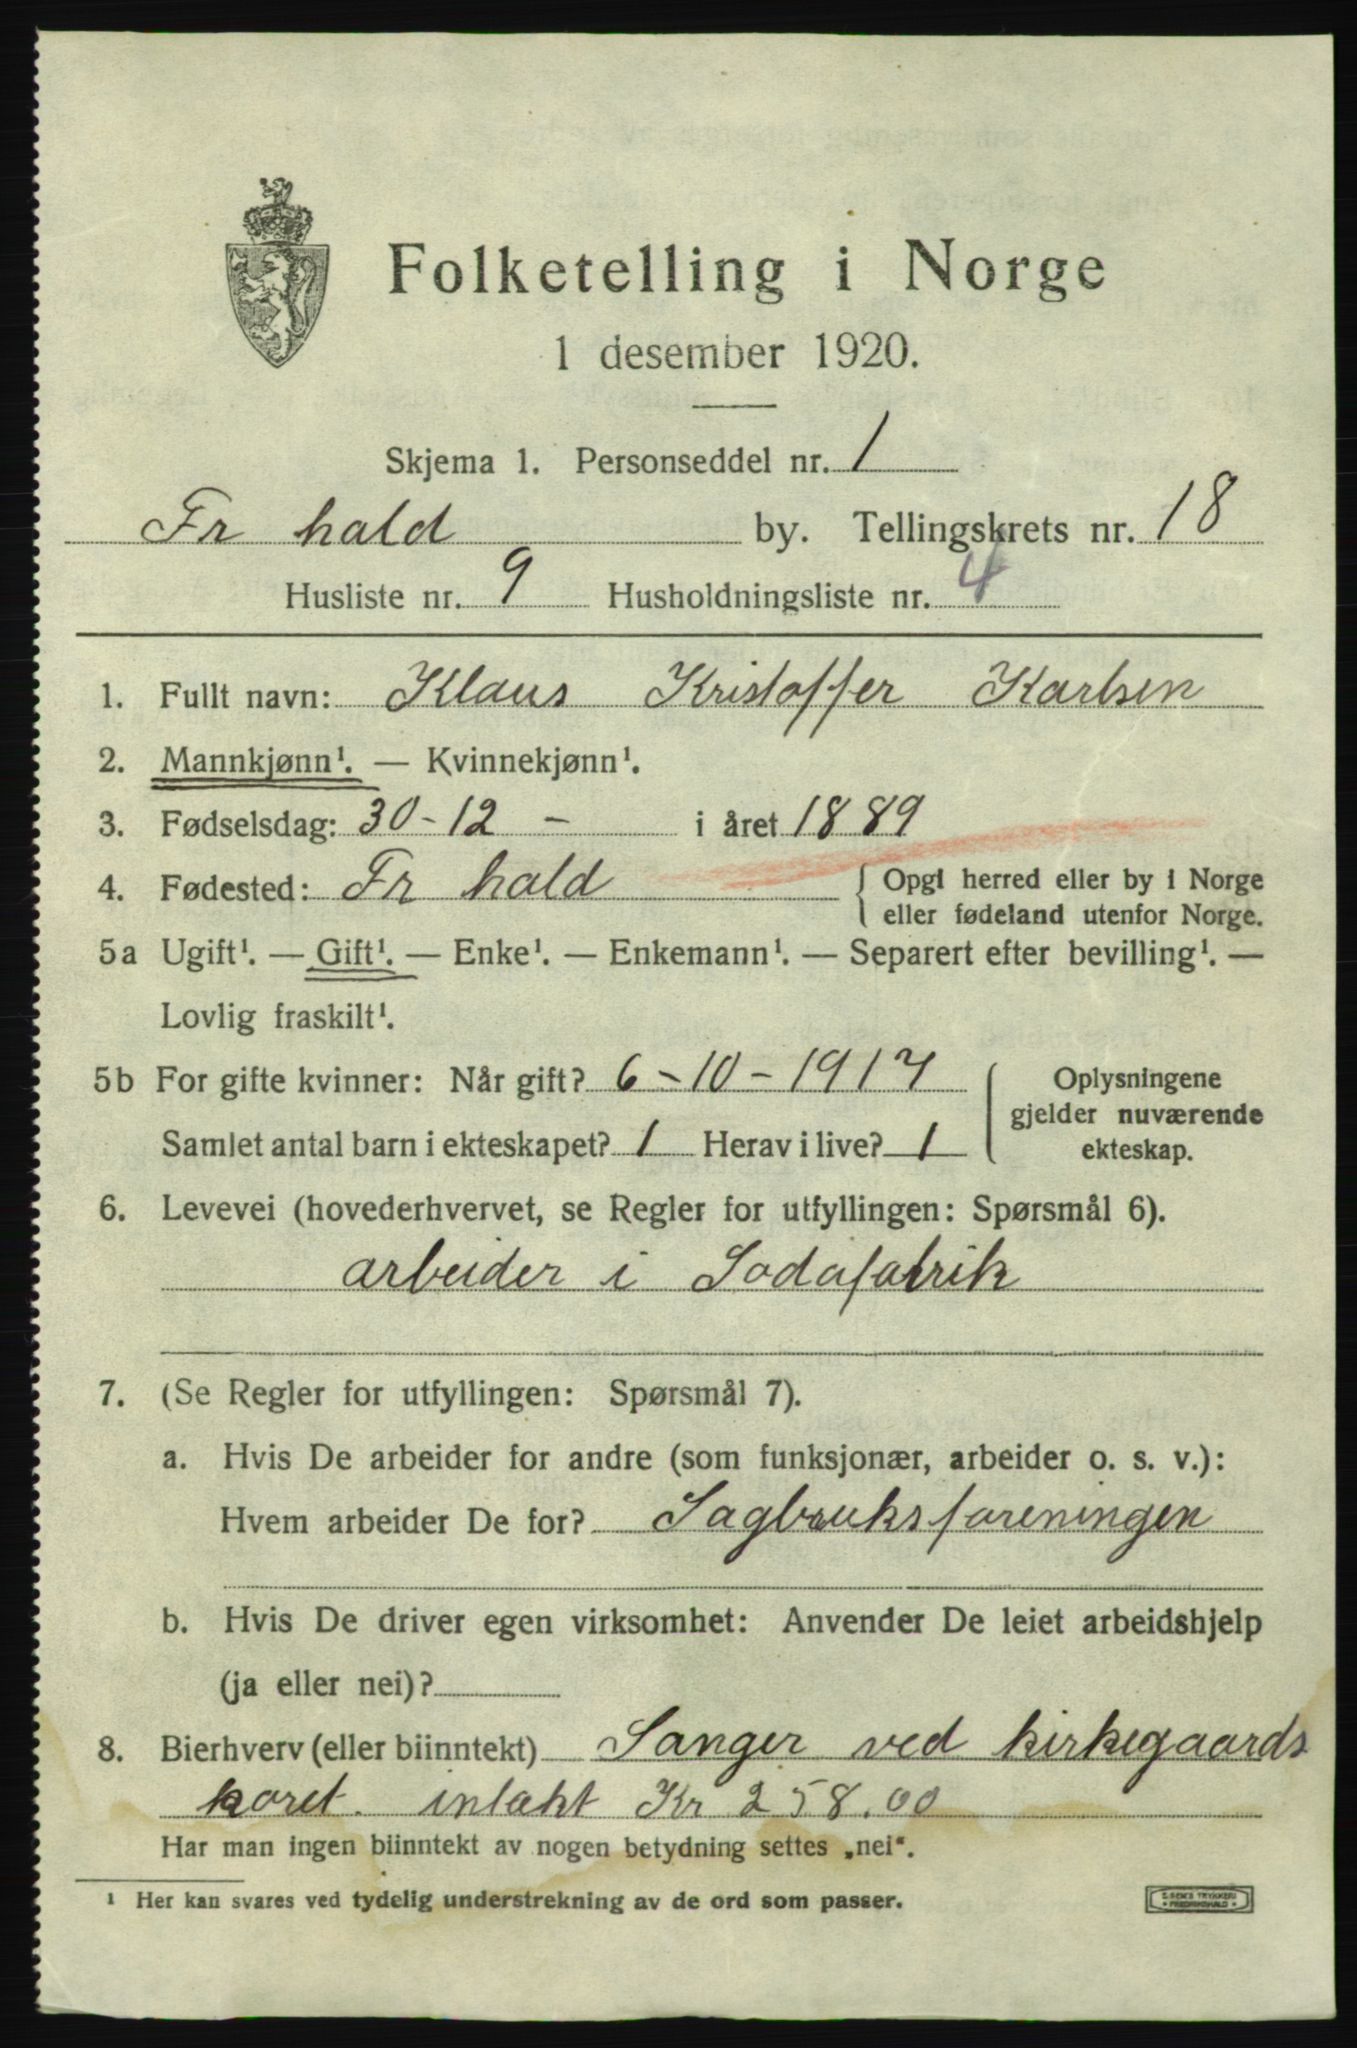 Folketelling i Norge
1 desember 1920.
Skjema 1. Personseddel nr. 1
Fr hald by. Tellingskrets nr. 18
Husliste nr. 9 Husholdningsliste nr. 4
1. Fullt navn: Klaus Kristoffer Karlsen
2. Mannkjønn¹. — Kvinnekjønn¹.
3. Fødselsdag: 30-12 - i året 1889
4. Fødested: Fr hald { Opgi herred eller by i Norge
eller fødeland utenfor Norge.
5a Ugift¹. — Gift¹. — Enke¹. — Enkemann¹. — Separert efter bevilling¹. —
Lovlig fraskilt¹.
5b For gifte kvinner: Når gift? 6-10-1917 { Oplysningene
gjelder nuværende
Samlet antal barn i ekteskapet? 1 Herav i live? 1 ekteskap.
6. Levevei (hovederhvervet, se Regler for utfyllingen: Spørsmål 6).
arbeider i Sodafabrik
7. (Se Regler for utfyllingen: Spørsmål 7).
a. Hvis De arbeider for andre (som funksjonær, arbeider o. s. v.):
Hvem arbeider De for? Sagbruksforeningen
b. Hvis De driver egen virksomhet: Anvender De leiet arbeidshjelp
(ja eller nei)?
8. Bierhverv (eller biinntekt) Sanger ved kirkegaards
koret. intækt Kr 258.00
Har man ingen biinntekt av nogen betydning settes „nei“.
¹ Her kan svares ved tydelig understrekning av de ord som passer.